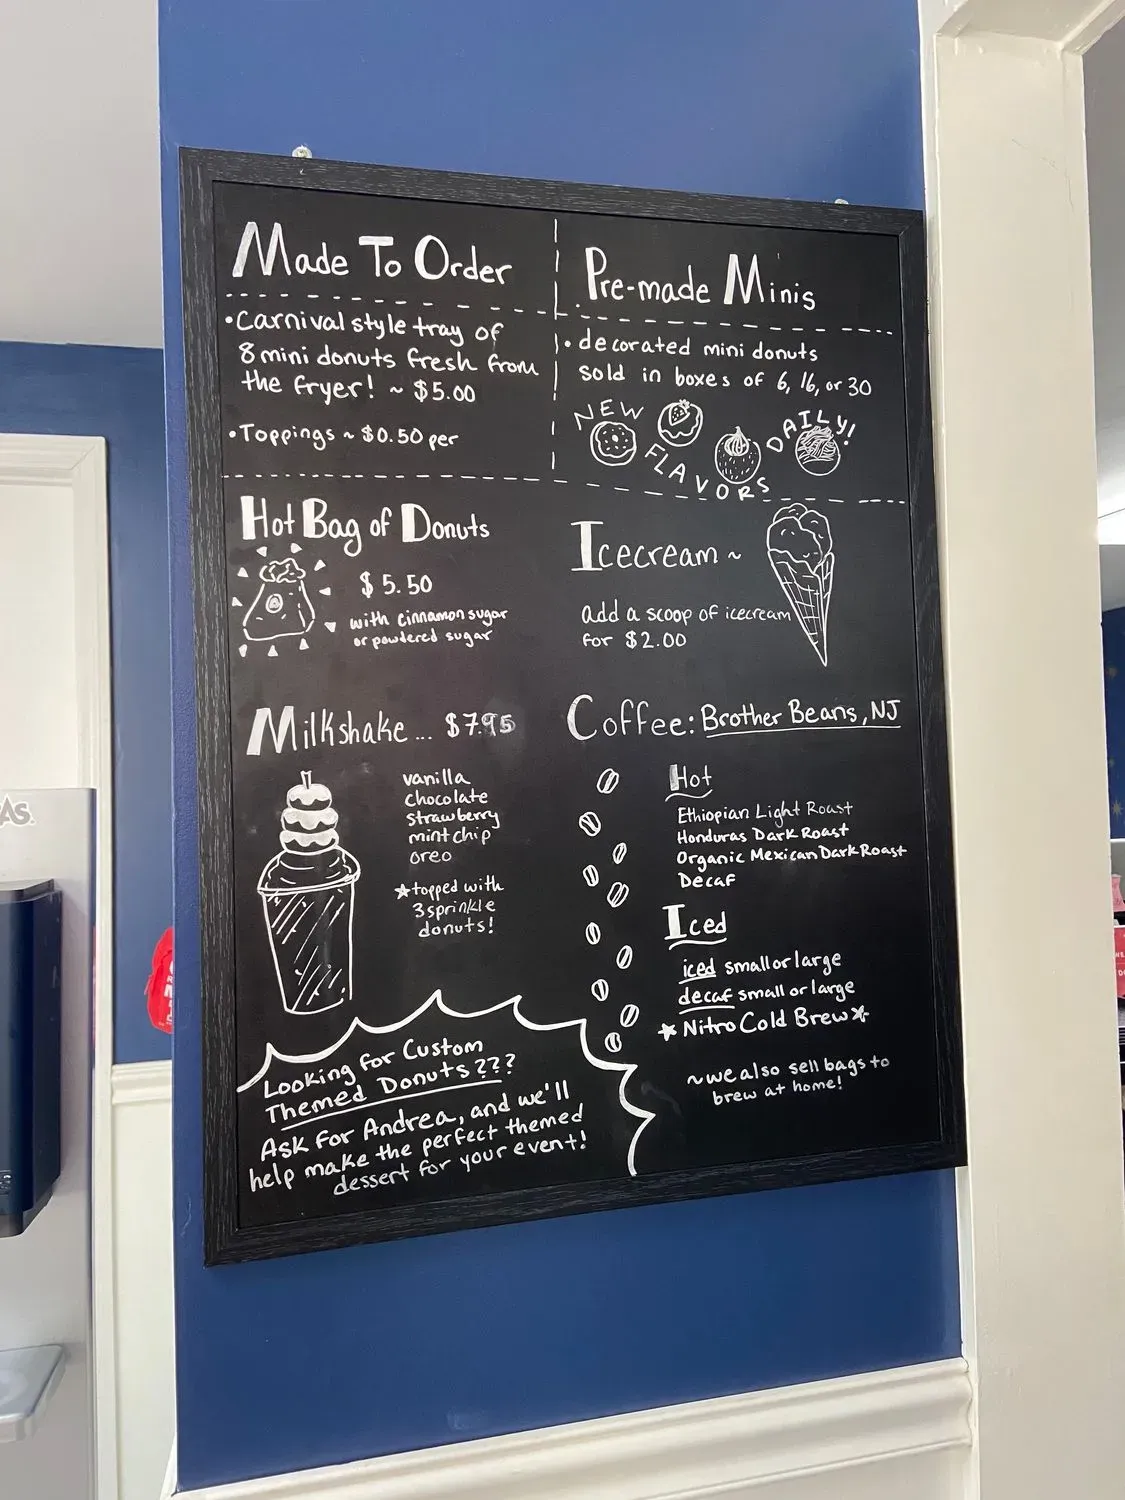 Made To Order
•Carnival style tray of
8 mini donuts fresh from
the fryer! ~ $5.00
•Toppings ~ $0.50 per
Pre-made Minis
• decorated mini donuts
sold in boxes of 6, 16, or 30
NEW
FLAVORS
DAILY!
Hot Bag of Donuts
$5.50
with cinnamon sugar
or powdered sugar
Icecream ~
add a scoop of icecream
for $2.00
Milkshake... $7.95
vanilla
chocolate
strawberry
mint chip
oreo
★topped with
3 sprinkle
donuts!
Coffee: Brother Beans, NJ
Hot
Ethiopian Light Roast
Honduras Dark Roast
Organic Mexican Dark Roast
Decaf
Iced
iced small or large
decaf small or large
★ Nitro Cold Brew ★
~we also sell bags to
brew at home!
Looking for Custom
Themed Donuts???
Ask for Andrea, and we'll
help make the perfect themed
dessert for your event!